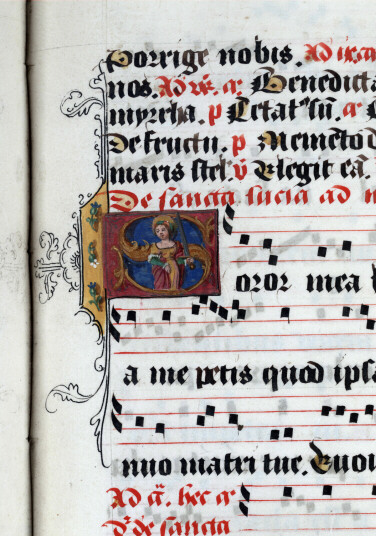 Porrige nobis. Ad
nos. Ad Benedicta
myrrha. p
De fructu. p Memeto
maris stel. v Elegit ea.
De sancta lucia ad
Soror mea
a me petis quod ipsa
nuo matri tue. Quo
Ad hec
de sancta